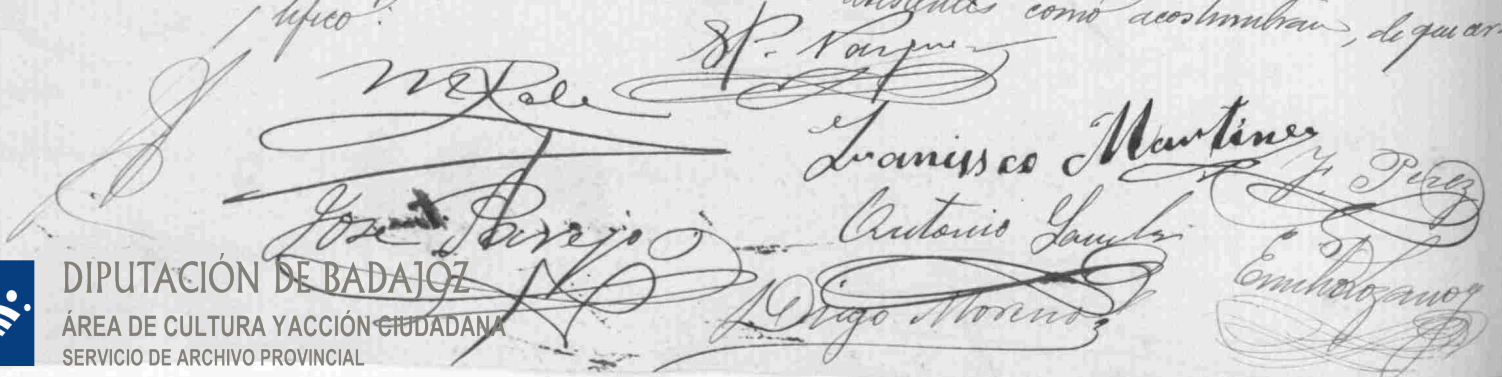 tifico.
como acostumbran, de que cer
P. Vazquez
Francisco Martinez
J. Perez
José Parejo
Antonio
Emilio Lozano
Diego Moreno
DIPUTACIÓN DE BADAJOZ
ÁREA DE CULTURA Y ACCIÓN CIUDADANA
SERVICIO DE ARCHIVO PROVINCIAL